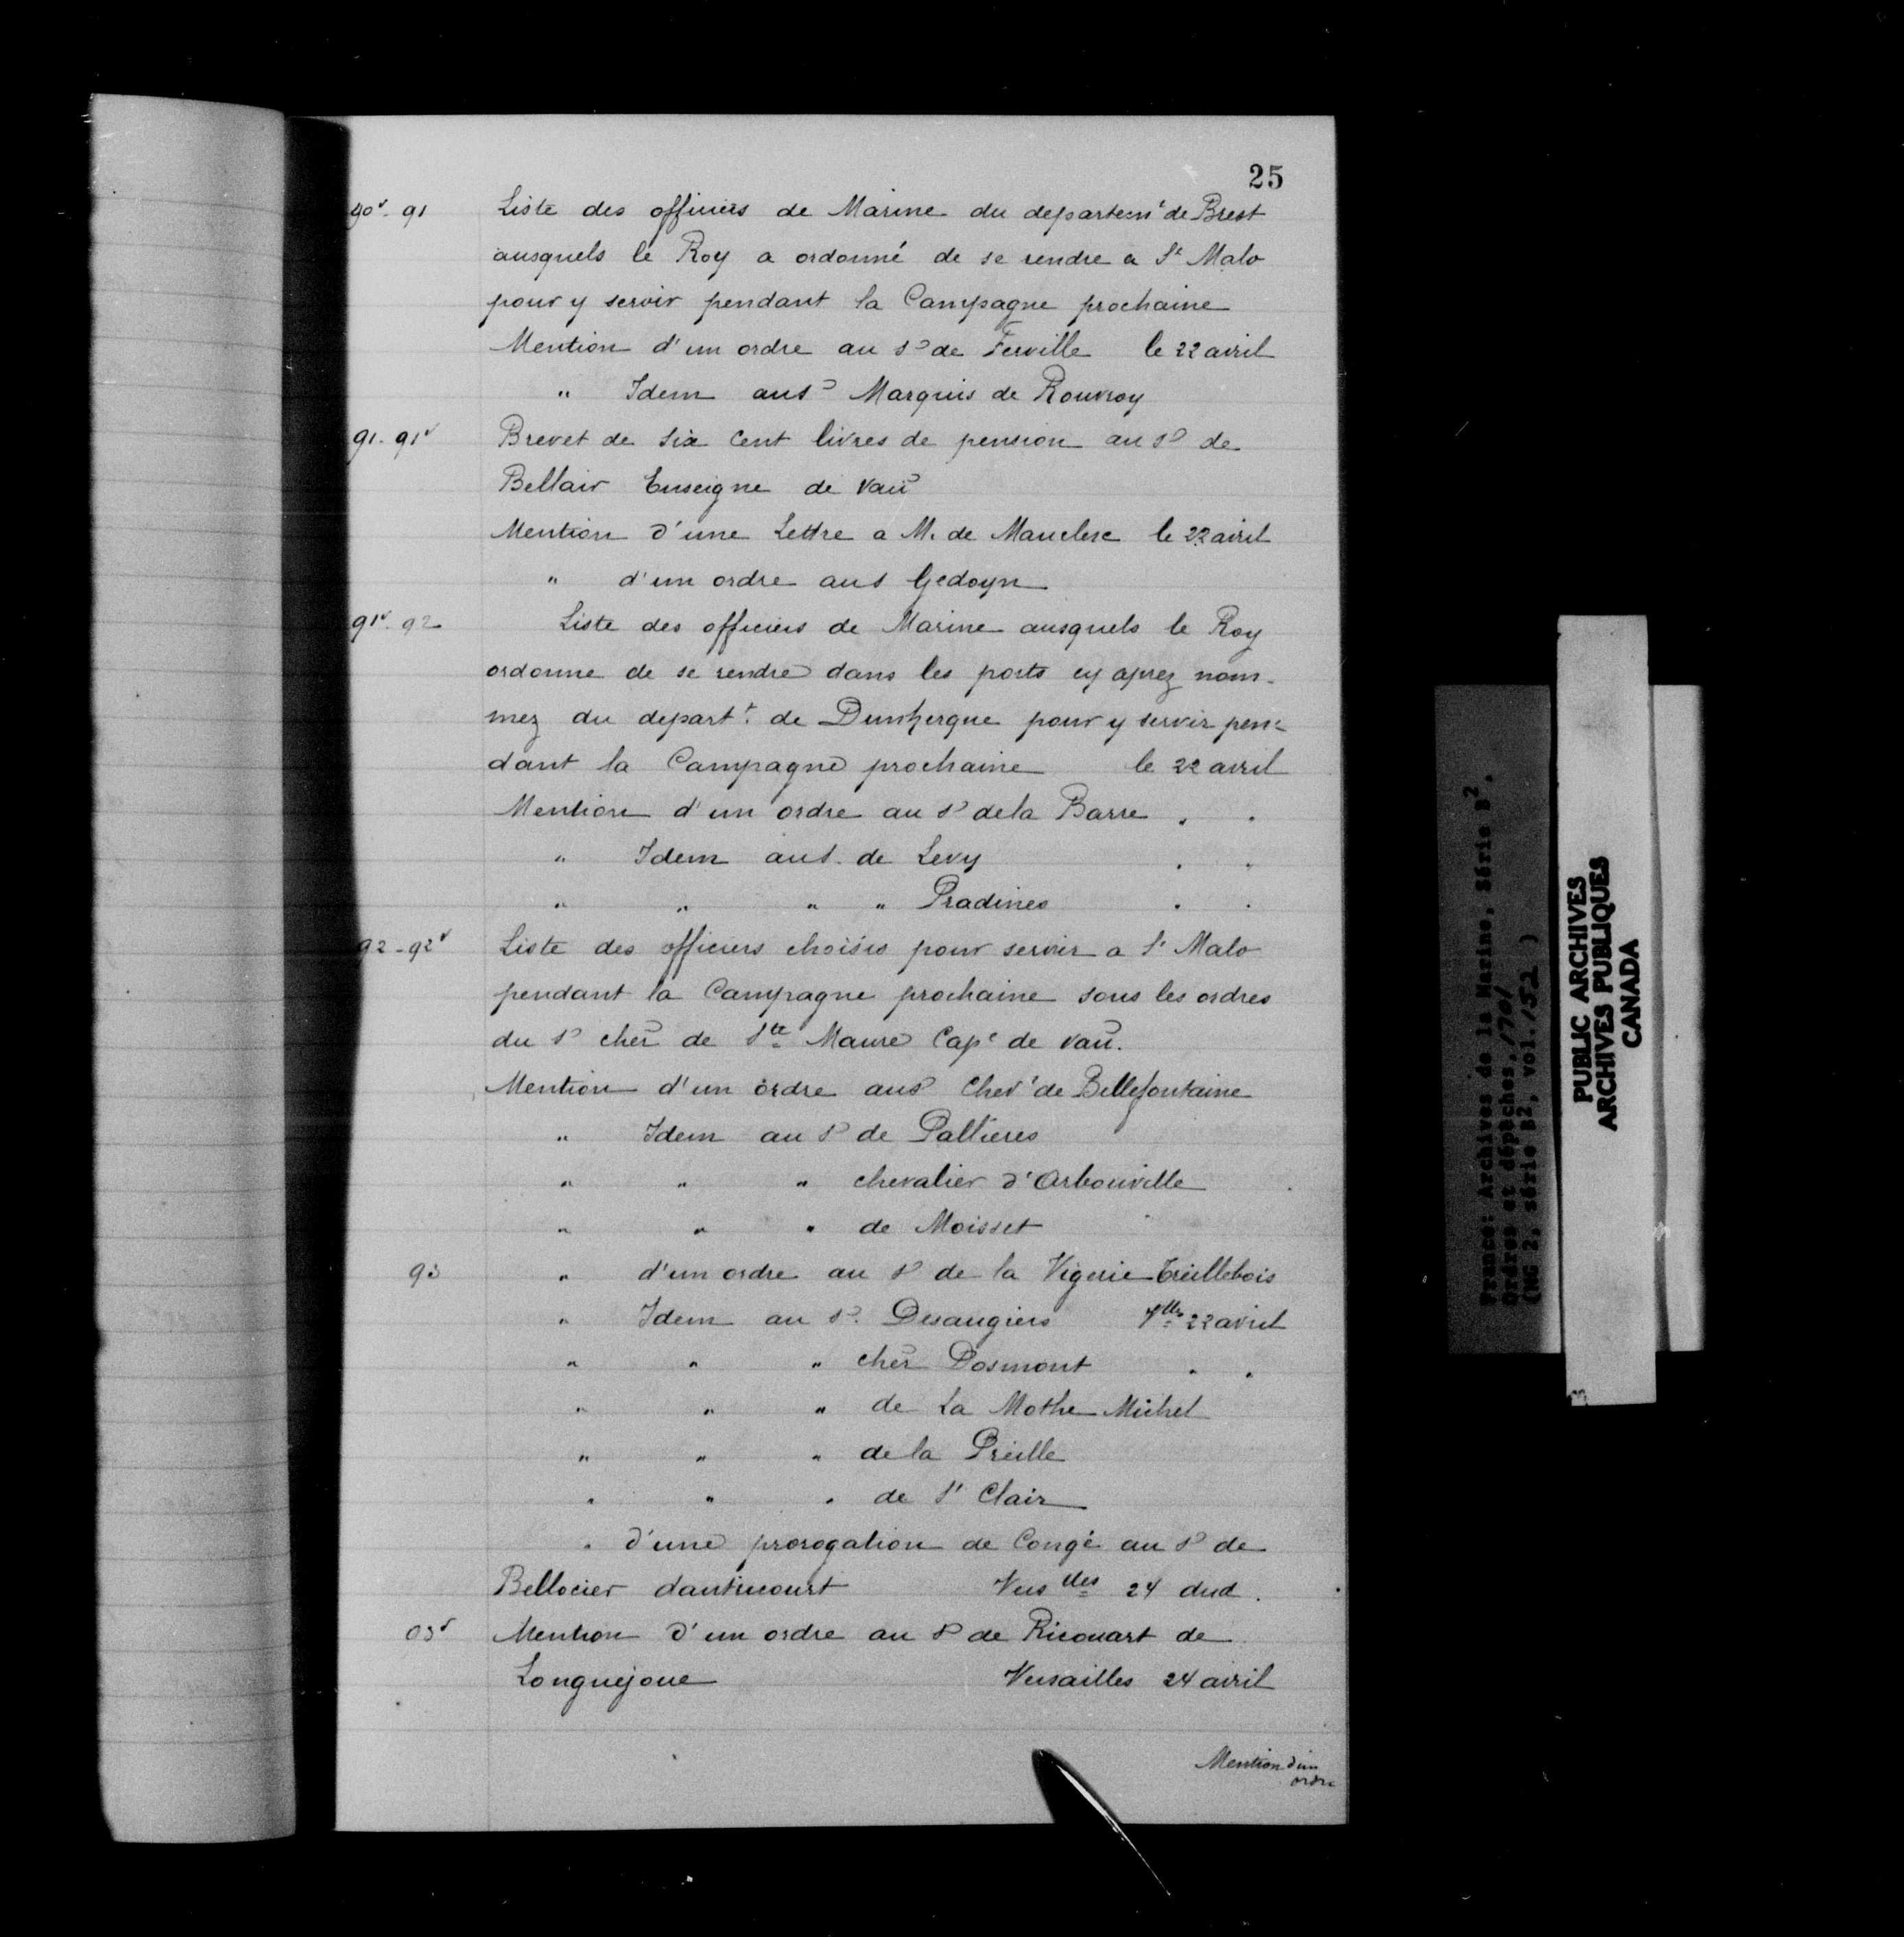 25
90v. 91 Liste des officiers de Marine du departemt de Brest
ausquels le Roy a ordonné de se rendre a St Malo
pour y servir pendant la Campagne prochaine
Mention d'un ordre au Sr de Ferville le 22 avril
" Idem au Sr Marquis de Rouvroy
91. 91v Brevet de six Cent livres de pension au Sr de
Bellair Enseigne de Vau
Mention d'une Lettre a M. de Mauclerc le 22 avril
" d'un ordre au S Gedoyn
91v. 92 Liste des officiers de Marine ausquels le Roy
ordonne de se rendre dans les ports cy aprez nom-
mez du depart.t de Dunkerque pour y servir pen-
dant la Campagne prochaine le 22 avril
Mention d'un ordre au Sr de la Barre " "
" Idem au S. de Levy " "
" " " " Pradines " "
92-92v Liste des officiers choisis pour servir a St Malo
pendant la Campagne prochaine sous les ordres
du Sr cher de Ste Maure Capne de vau.
Mention d'un ordre au Sr Chevr de Bellefontaine
" Idem au Sr de Paltieres
" " " chevalier d'Arbouville
" " " de Moisset
93 " d'un ordre au Sr de la Vigerie Treillebois
" Idem au Sr. Desaugiers Vlles 22 avril
" " " cher Dosmont " "
" " " de La Mothe Michel
" " " de la Preille
" " " de St Clair
" d'une prorogation de Congé au Sr de
Bellocier dantricourt Vers lles 24 dud.
93v Mention d'un ordre au Sr de Ricouart de
Longuejoue Versailles 24 avril
Mention d'un
ordre
France: Archives de la Marine, Série B2,
Ordres et dépêches, 1701
(MG 2, série B2, vol. 152 )
PUBLIC ARCHIVES
ARCHIVES PUBLIQUES
CANADA